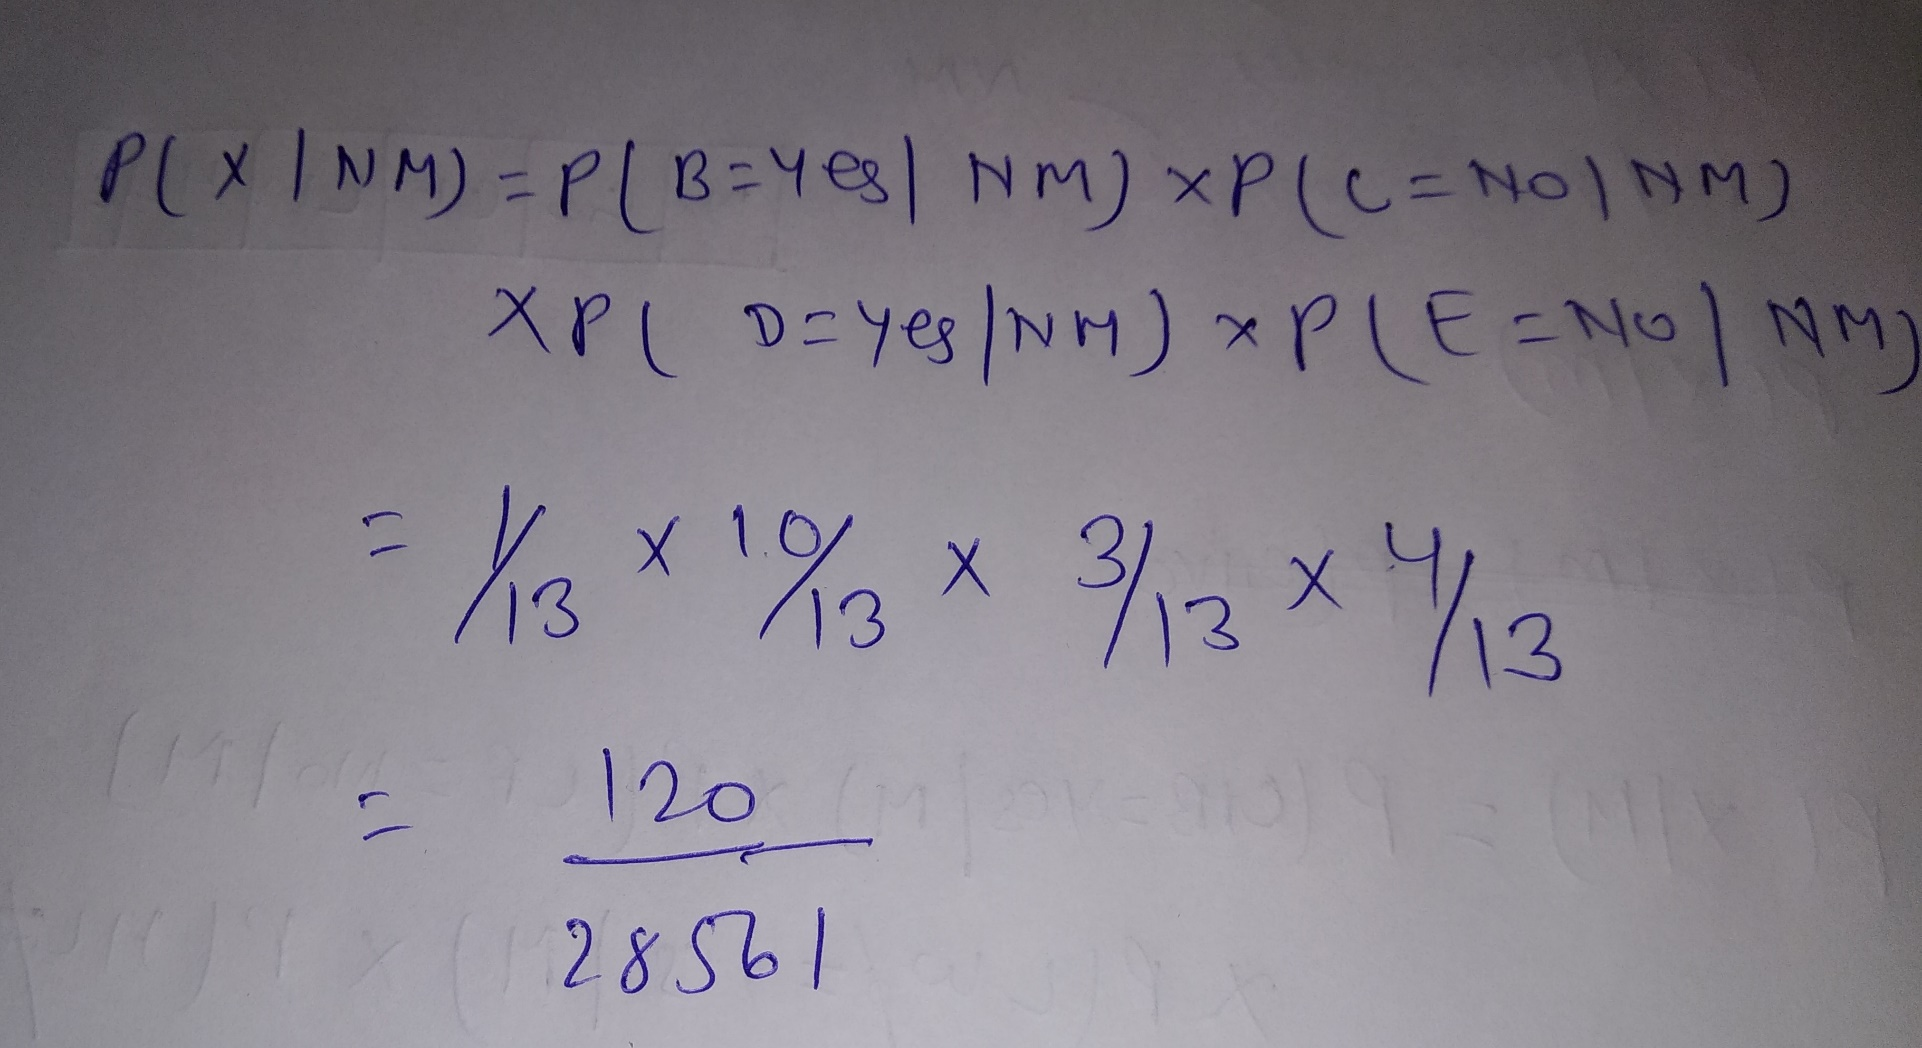 P(X|NM) = P(B=Yes|NM) x P(C=No|NM)
x P(D=Yes|NM) x P(E=No|NM)
= 1/13 x 10/13 x 3/13 x 4/13
= 120
28561